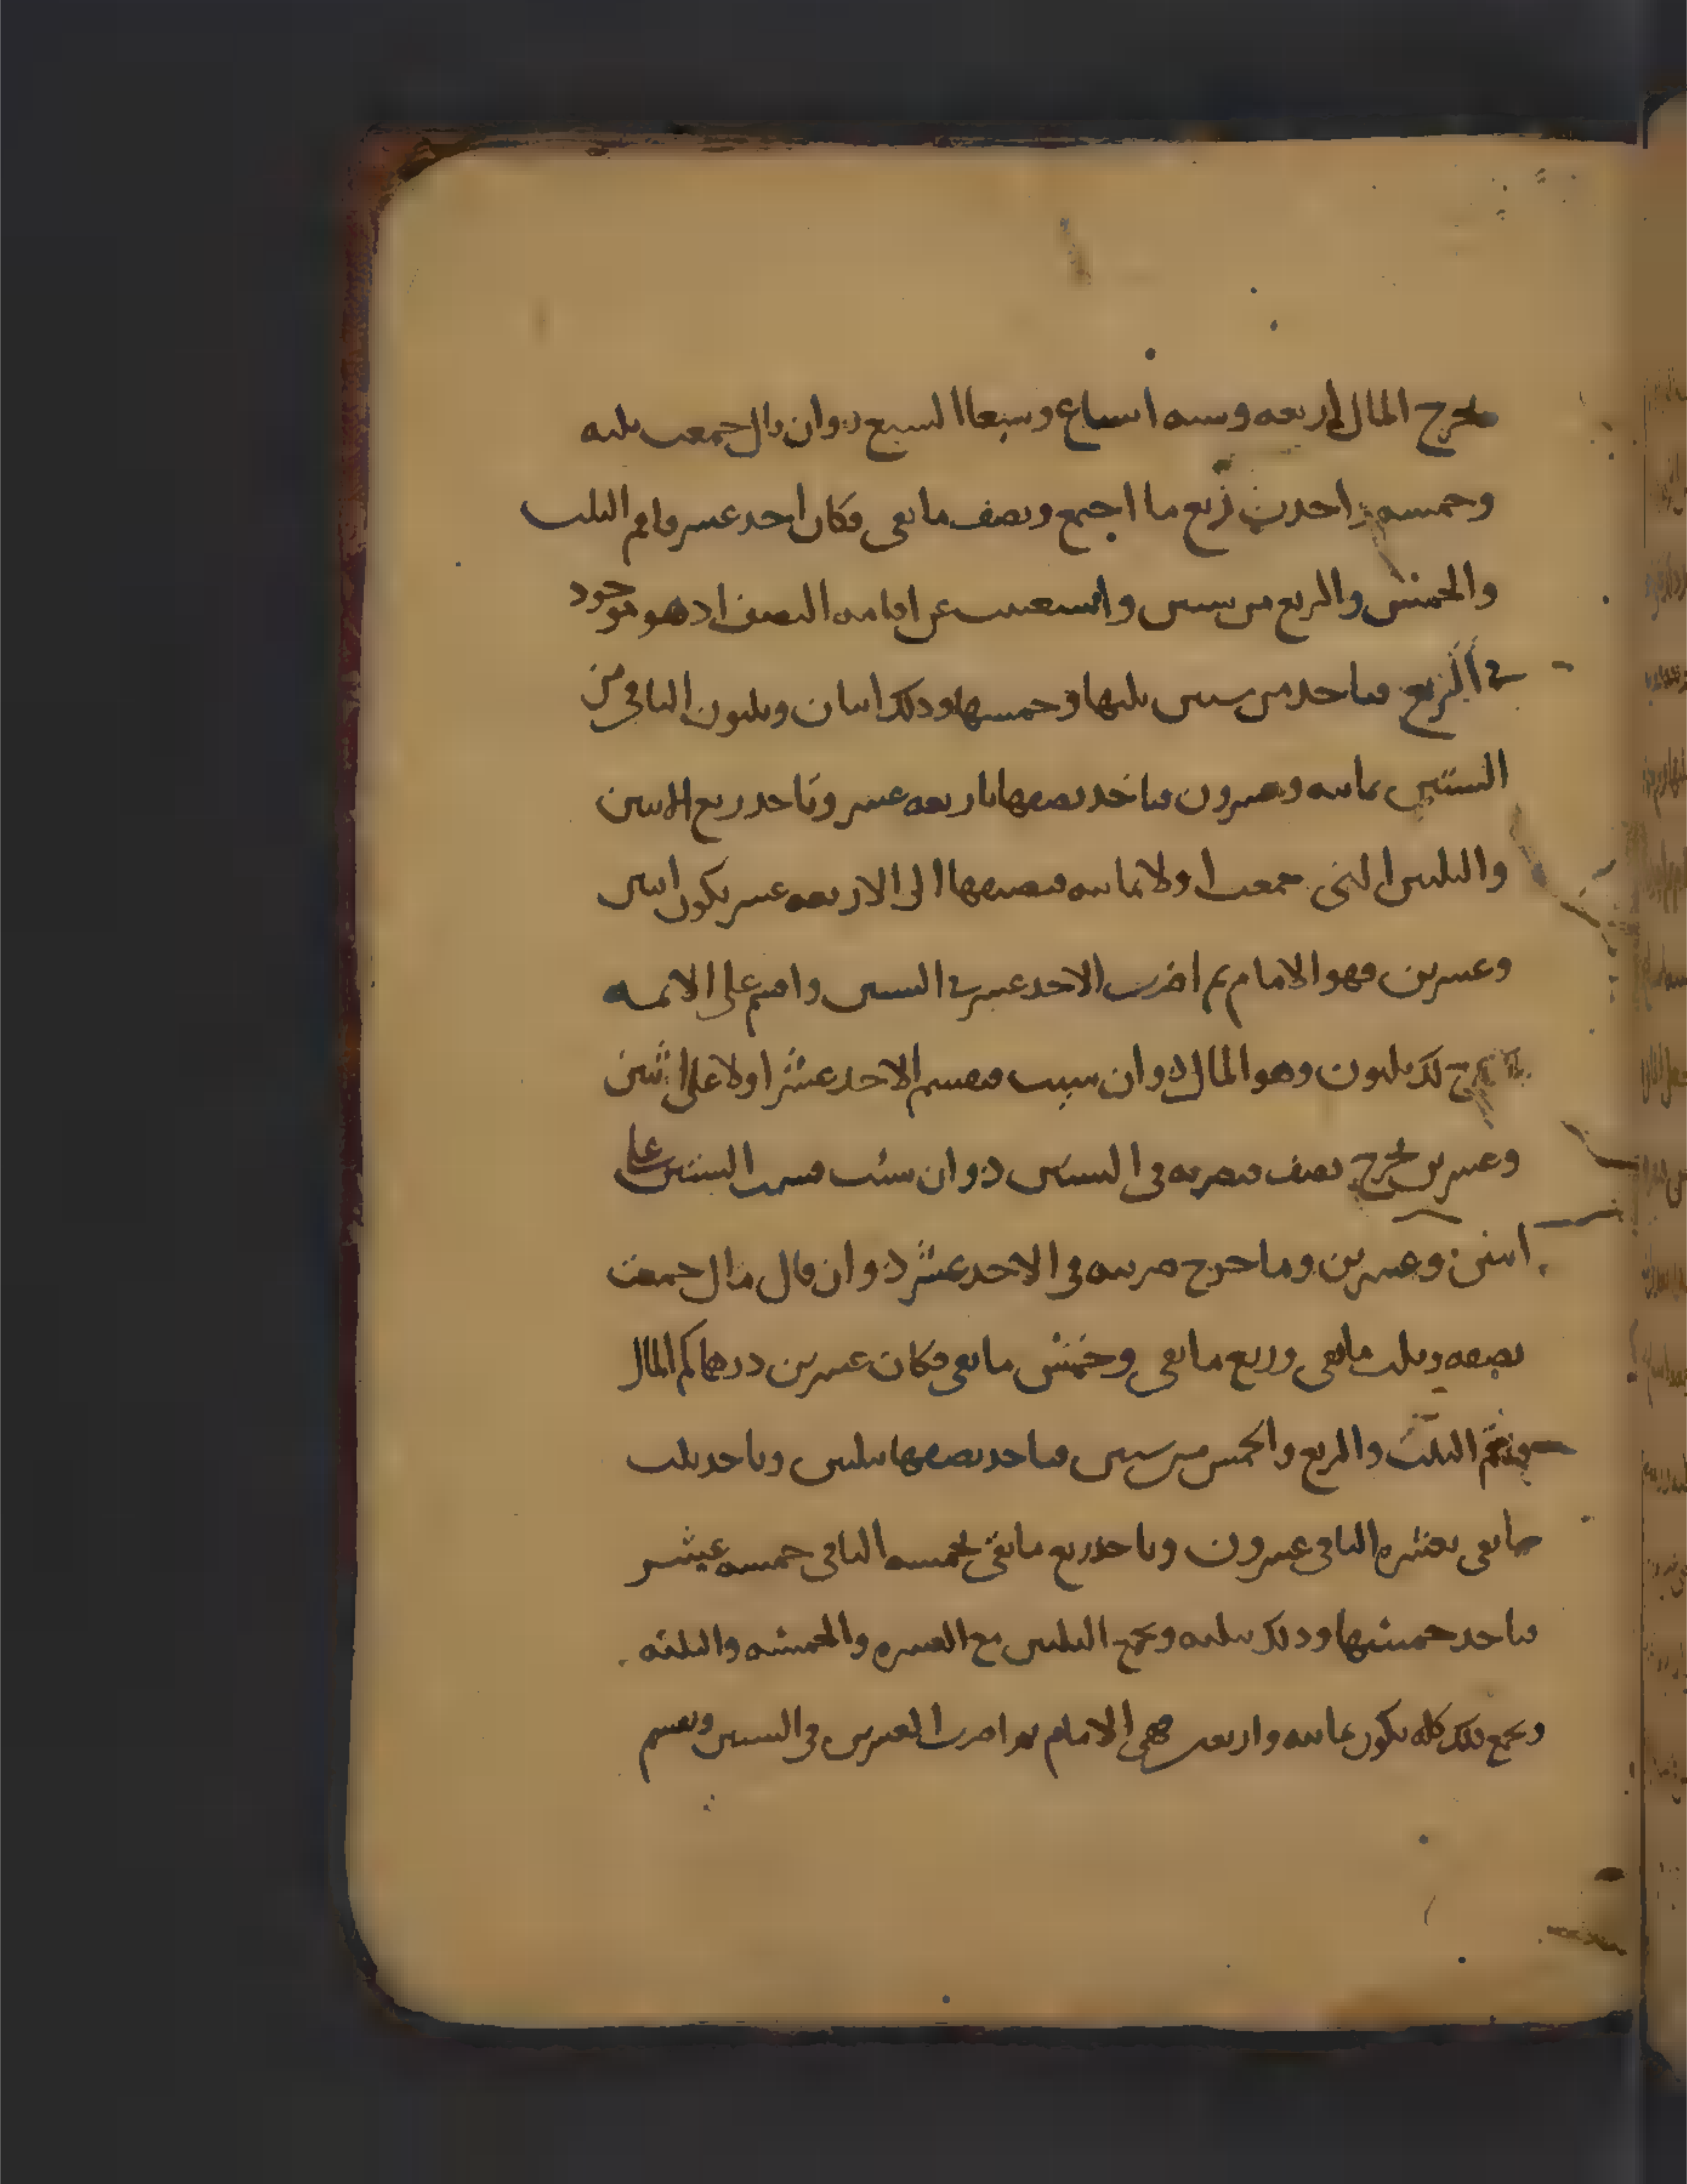 يخرج المال اربعه وسته اسباع وسبعا السبع ٥ وان قال جمعت ثلثه
وخمسه واخذت ربع ما اجتمع ونصف ما بقى فكان احد عشر فاقم الثلث
والخمس والربع من ستين واستغنيت عن اقامه النصف اذ هو موجود
في الربع فتاخذ من ستين ثلثها وخمسها وذلك اثنان وثلثون الباقي من
الستين ثمانيه وعشرون فتاخذ نصفها باربعه عشر وتاخذ ربع الاثنين
والثلثين التى جمعت اولا ثمانيه فتضيفها الى الاربعه عشر يكون اثنين
وعشرين فهو الامام ثم اضرب الاحد عشر في الستين واقسم على الايمه
يخرج لك ثلثون وهو المال ٥ وان شيت فقسم الاحد عشر اولا على اثنين
وعشرين يخرج نصف فتضربه في الستين ٥ وان شئت قسمت الستين على
اثنين وعشرين وما خرج ضربته في الاحد عشر ٥ وان قال مال جمعت
نصفه وثلث ما بقى وربع ما بقى وخمس ما بقى فكان عشرين درهما كم المال
فتقيم الثلث والربع والخمس من ستين فتاخذ نصفها ثلثين وتاخذ ثلث
ما بقى بعشره الباقي عشرون وتاخذ ربع ما بقى بخمسه الباقي خمسه عشر
فتاخذ خمسها وذلك ثلثه وتجمع الثلثين مع العشره والخمسه والثلثه
وتجمع ذلك كله يكون ثمانيه واربعين فهي الامام ثم اضرب العشرين في الستين وتقسم